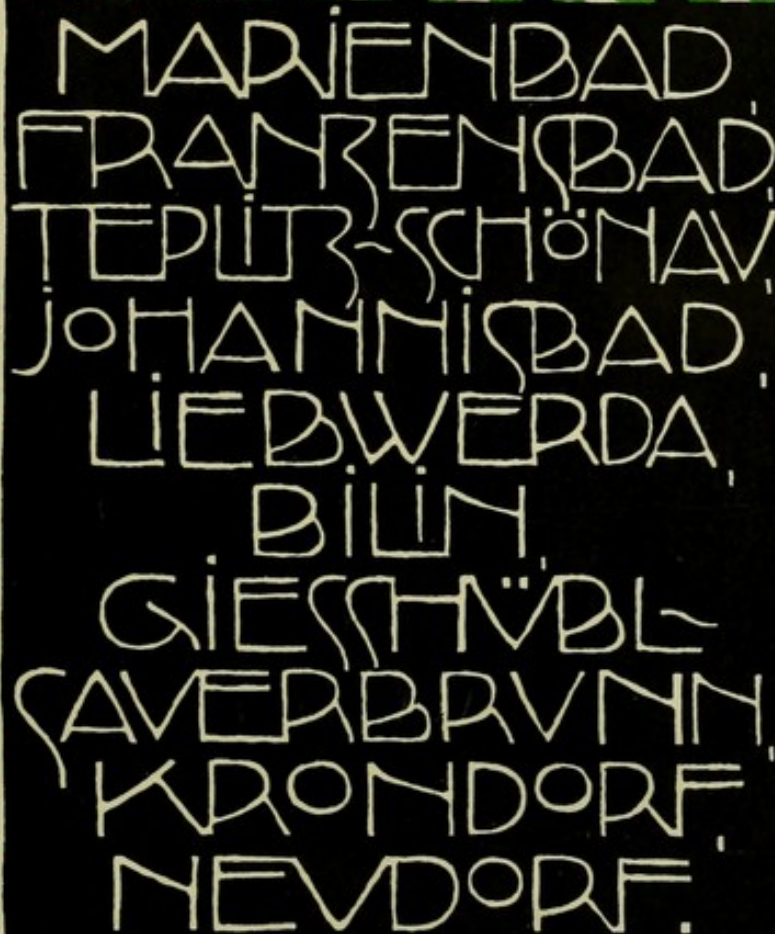 MARIENBAD,
FRANZENSBAD,
TEPLITZ-SCHÖNAV,
JOHANNISBAD,
LIEBWERDA,
BILIN,
GIESSHÜBL-
SAVERBRVNN,
KRONDORF,
NEVDORF.